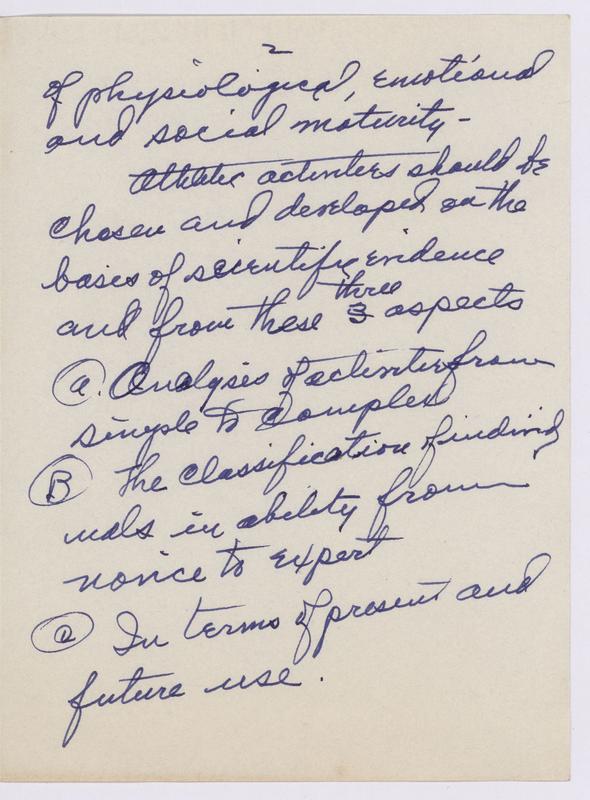 2
of physiological, emotional
and social maturity -
Athletic activities should be
chosen and developed on the
bases of scientific evidence
three
and from these 3 aspects
a. Analysis of activities from
simple to complex
B The classification of individ
uals in ability from
novice to expert
In terms of present and
future use.